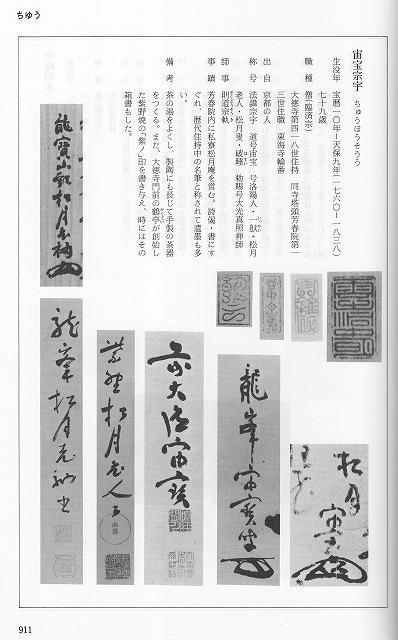 ちゆう
宙宝宗宇 ちゅうほうそうう
生没年 宝暦一〇年―天保九年(一七六〇―一八三八)
七十九歳
職種 僧(臨済宗)
大徳寺第四一八世住持 同寺塔頭芳春院第一
三世住職 東海寺輪番
出自 京都の人
称号 法諱宗宇 道号宙宝 号洛陽人・一獃・松月
老人・松月叟・破睡 勅賜号大光真照禅師
師事 則道宗軌
事蹟 芳春院内に私寮松月庵を営む。詩偈・書にす
ぐれ、歴代住持中の名筆と称されて遺墨も多
い。
備考 茶の湯をよくし、製陶にも長じて手製の茶器
をつくる。また、大徳寺門前の鶴亭が創始し
た紫野焼の「紫ノ」印を書き与え、時にはその
箱書もした。
松月
宙宝
龍峯宙宝叟
前大徳宙宝
紫野松月老人
龍峯松月老衲書
911